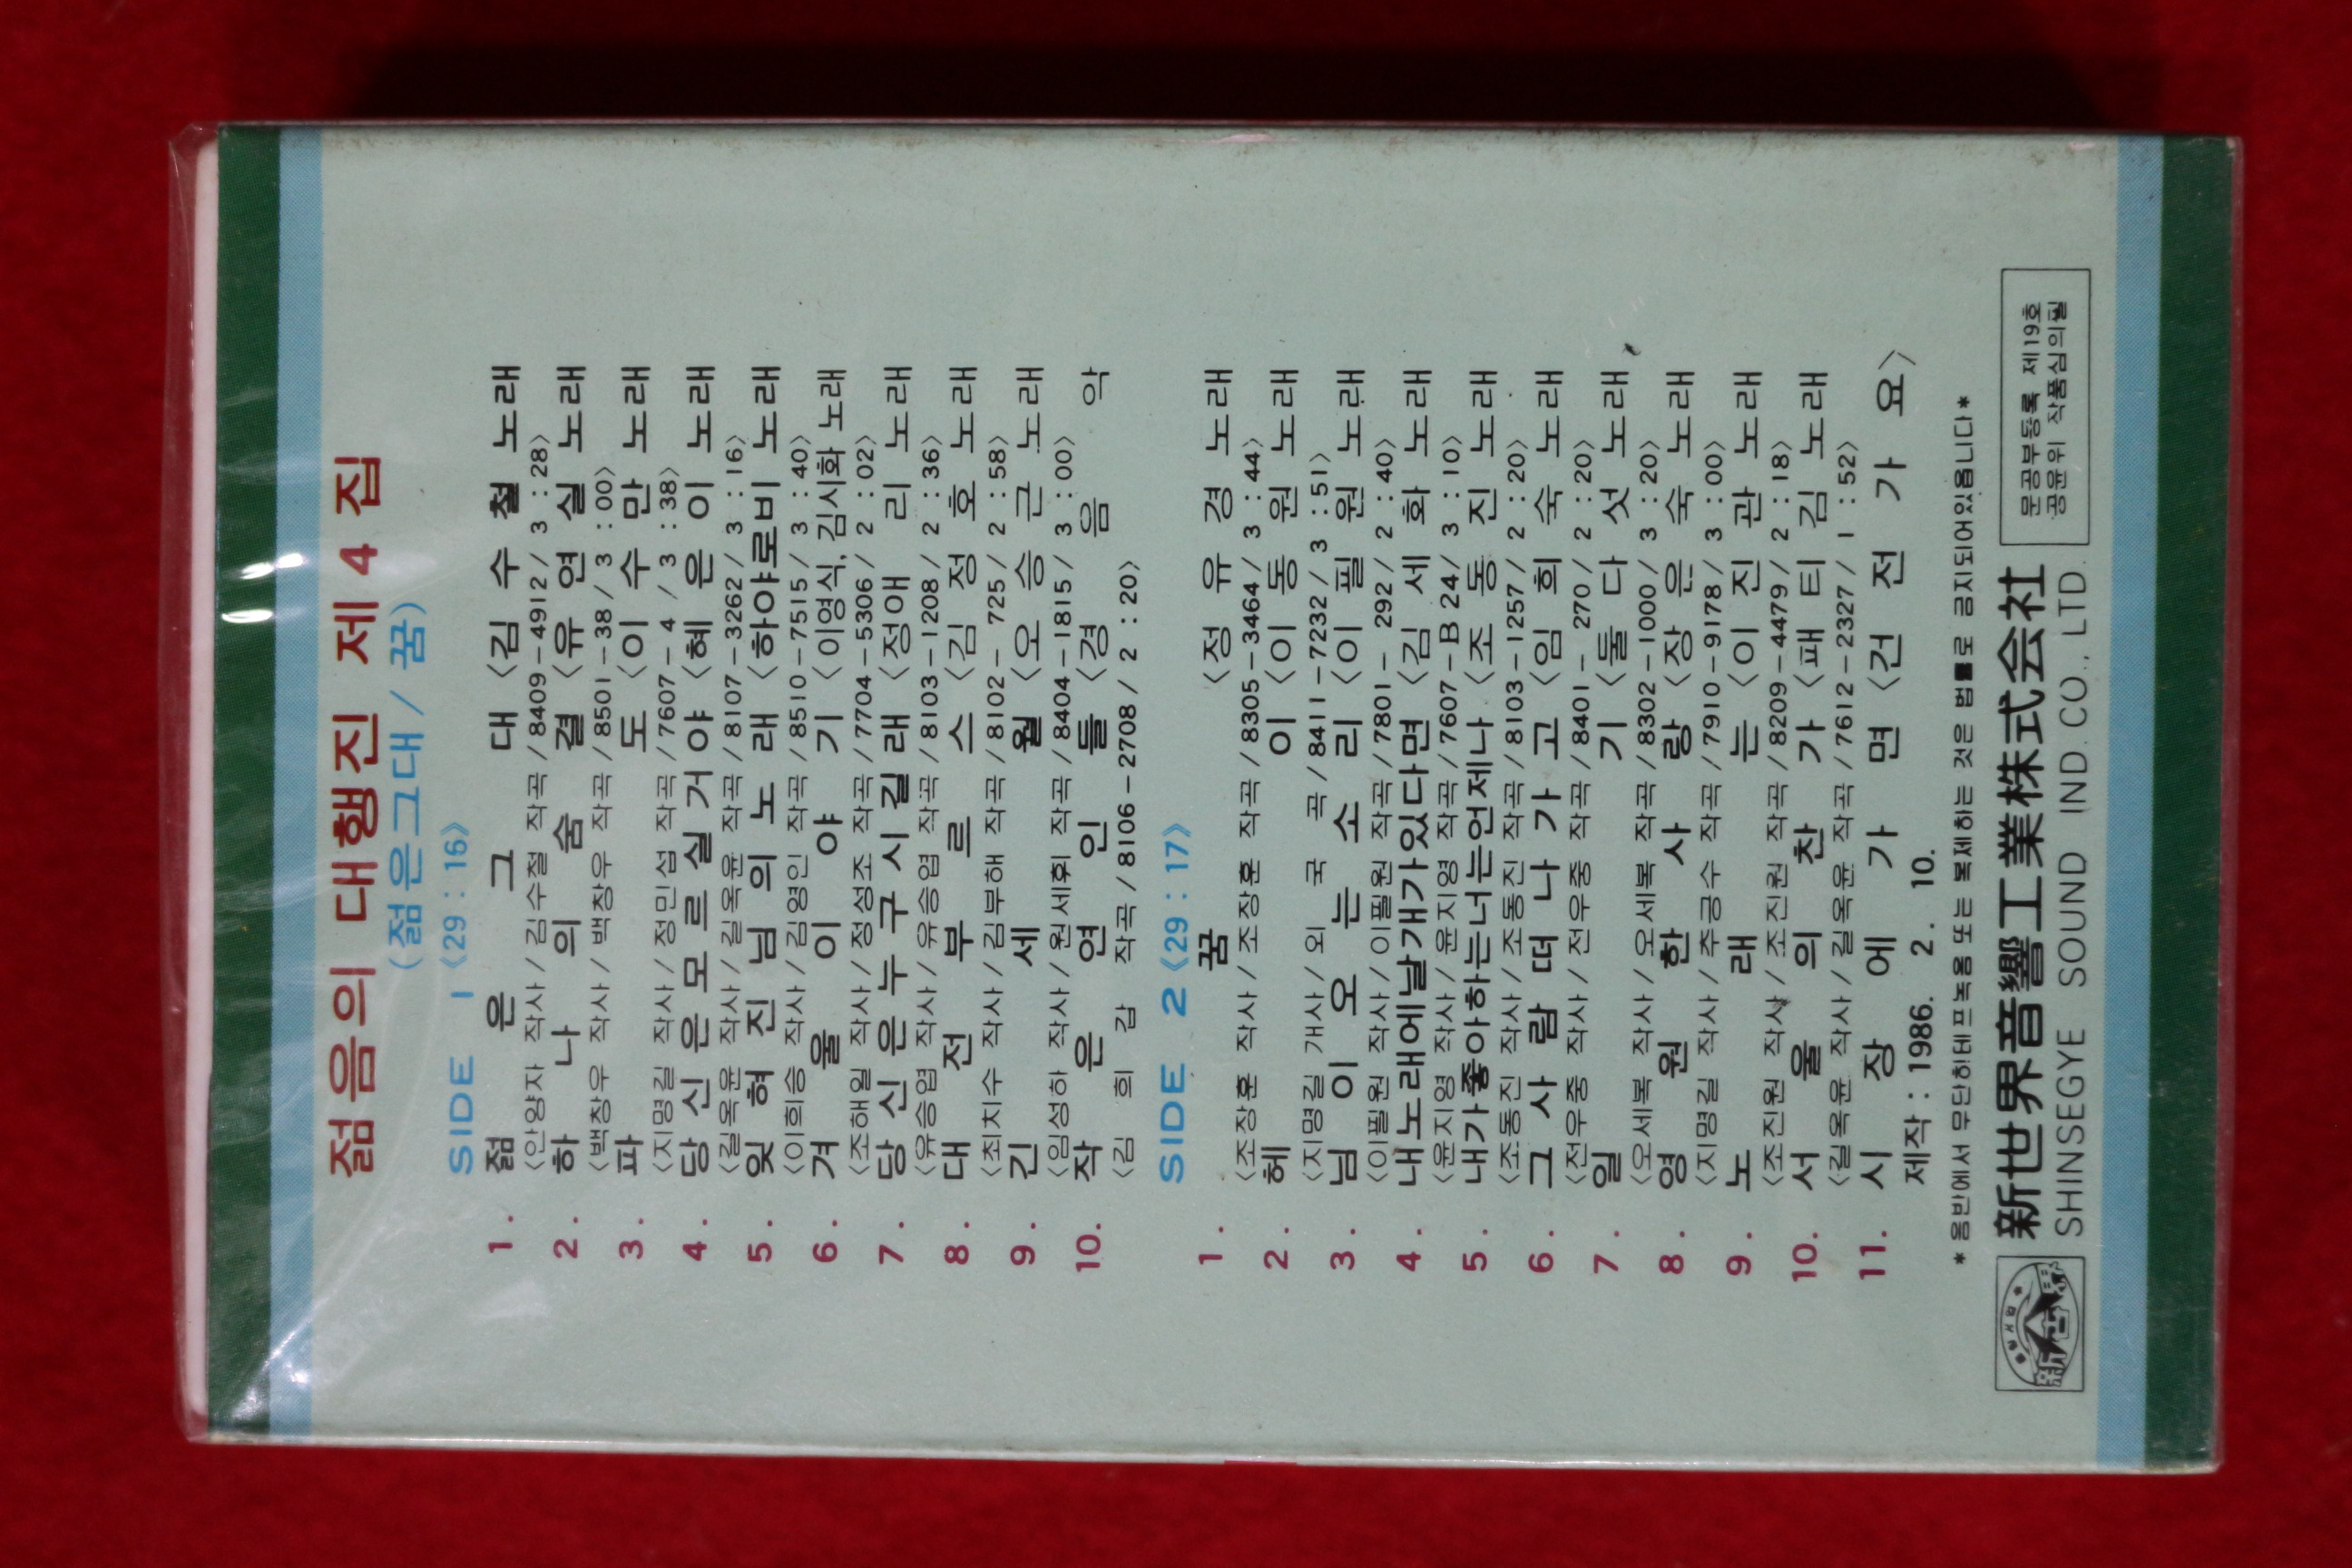 젊음의 대행진 제 4 집
(젊은그대 / 꿈)
SIDE 1 《29 : 16》
1. 젊은그대 〈김수철 노래
〈안양자 작사 / 김수철 작곡 / 8409-4912 / 3 : 28〉
2. 하나의 숨결 〈유연실 노래
〈백창우 작사 / 백창우 작곡 / 8501-38 / 3 : 00〉
3. 파도 〈이수만 노래
〈지명길 작사 / 정민섭 작곡 / 7607-4 / 3 : 38〉
4. 당신은모르실거야 〈혜은이 노래
〈길옥윤 작사 / 길옥윤 작곡 / 8107-3262 / 3 : 16〉
5. 잊혀진님의노래 〈하야로비 노래
〈이희승 작사 / 김영인 작곡 / 8510-7515 / 3 : 40〉
6. 겨울이야기 〈이영식, 김시화 노래
〈조해일 작사 / 정성조 작곡 / 7704-5306 / 2 : 02〉
7. 당신은누구시길래 〈정애리 노래
〈유승엽 작사 / 유승엽 작곡 / 8103-1208 / 2 : 36〉
8. 대전부르스 〈김정호 노래
〈최치수 작사 / 김부해 작곡 / 8102-725 / 2 : 58〉
9. 긴세월 〈오승근 노래
〈임성하 작사 / 원세휘 작곡 / 8404-1815 / 3 : 00〉
10. 작은연인들 〈경음악
〈김희갑 작곡 / 8106-2708 / 2 : 20〉
SIDE 2 《29 : 17》
1. 꿈 〈정유경 노래
〈조장훈 작사 / 조장훈 작곡 / 8305-3464 / 3 : 44〉
2. 헤이 〈이동원 노래
〈지명길 개사 / 외국곡 / 8411-7232 / 3 : 51〉
3. 님이오는소리 〈이필원 노래
〈이필원 작사 / 이필원 작곡 / 7801-292 / 2 : 40〉
4. 내노래에날개가있다면 〈김세화 노래
〈윤지영 작사 / 윤지영 작곡 / 7607-B 24 / 3 : 10〉
5. 내가좋아하는너는언제나 〈조동진 노래
〈조동진 작사 / 조동진 작곡 / 8103-1257 / 2 : 20〉
6. 그사람떠나가고 〈임희숙 노래
〈전우중 작사 / 전우중 작곡 / 8401-270 / 2 : 20〉
7. 일기 〈둘다섯 노래
〈오세복 작사 / 오세복 작곡 / 8302-1000 / 3 : 20〉
8. 영원한사랑 〈장은숙 노래
〈지명길 작사 / 추긍수 작곡 / 7910-9178 / 3 : 00〉
9. 노래는 〈이진관 노래
〈조진원 작사 / 조진원 작곡 / 8209-4479 / 2 : 18〉
10. 서울의찬가 〈패티김 노래
〈길옥윤 작사 / 길옥윤 작곡 / 7612-2327 / 1 : 52〉
11. 시장에가면 〈건전가요〉
제작 : 1986. 2. 10.
*음반에서 무단히테프녹음 또는 복제하는 것은 법률로 금지되어있읍니다*
新世界音響工業株式会社
SHINSEGYE SOUND IND. CO., LTD.
문공부등록 제19호
공윤위 작품심의필